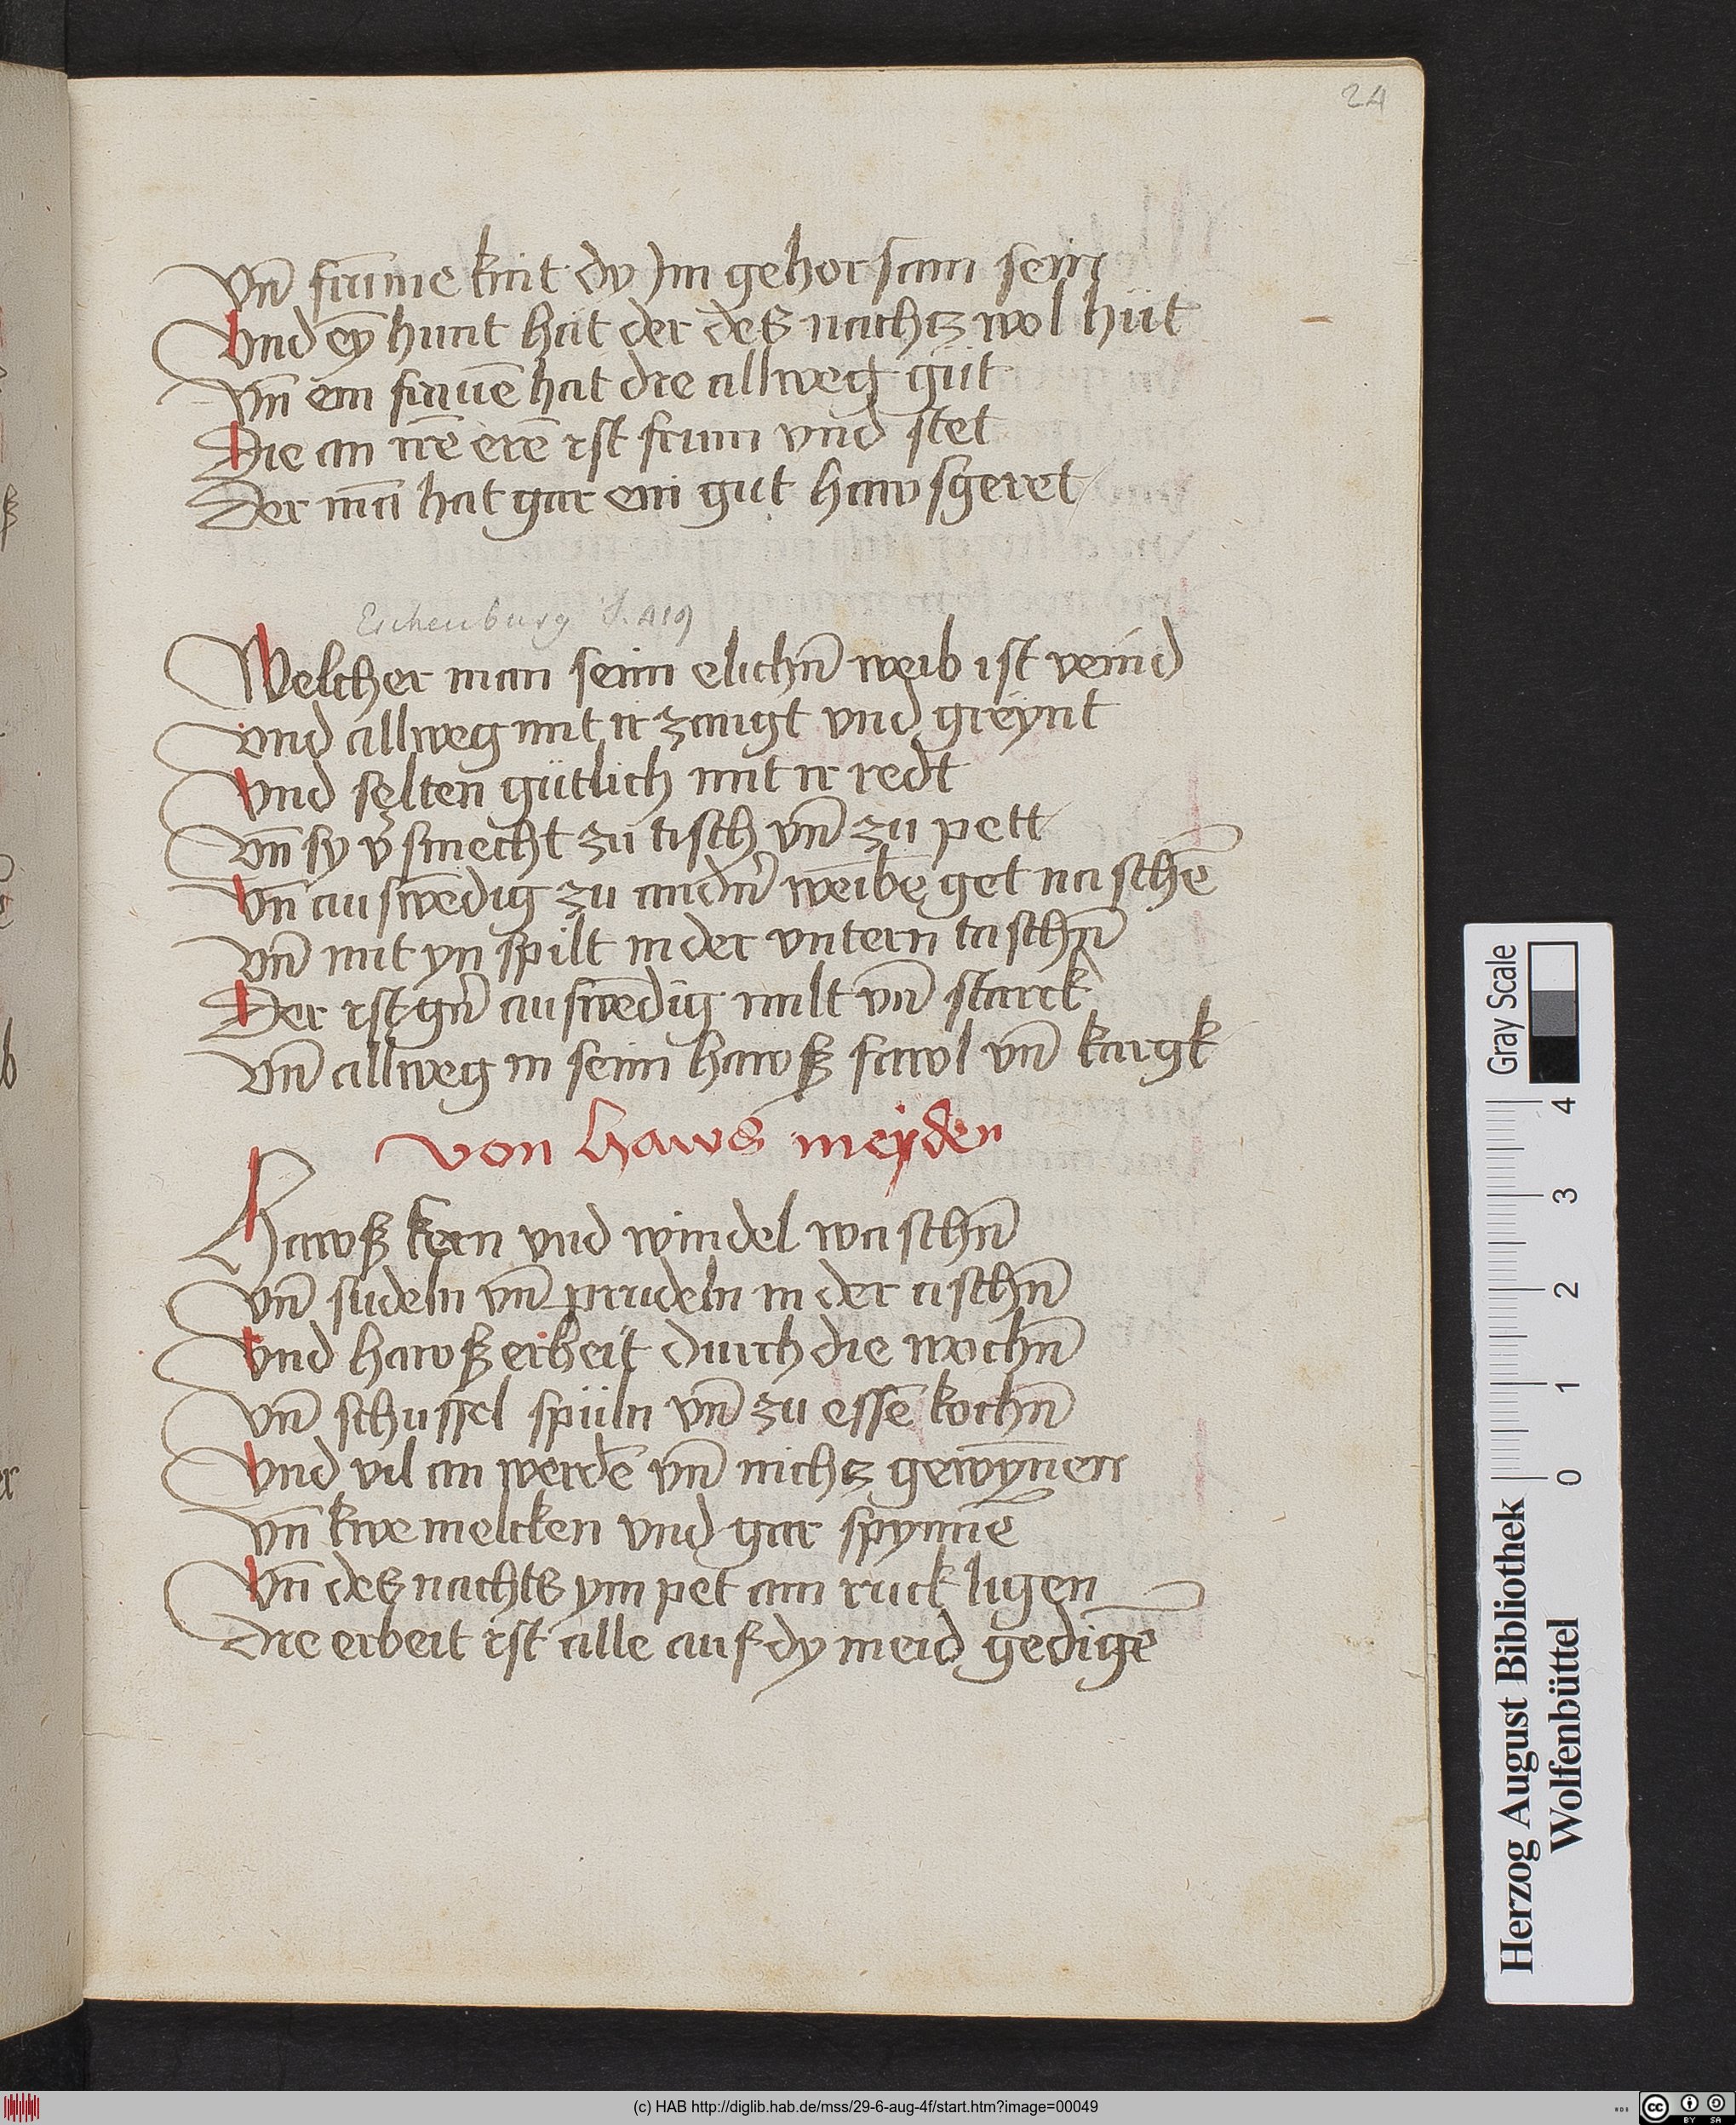 24
vn̄ frūme kint dy Im gehorsam sein
Vnd eȳ hunt hat der deß nachtz wol hüt
Vn̄ ein frauē hat die allweg güt
Die an irē erē ist frum vnd stet
Der mā hat gar ein gut hawsgeret
Eschenburg S. 419
Welcher man seim elichn̄ weib ist veind
vnd allweg mit ir zangt vnd greynt
Vnd selten gütlich mit ir redt
Vn̄ sy v̄smecht zu tisch vn̄ zu pett
Vn̄ auswēdig zu andn̄ weibē get naschē
vn̄ mit yn spilt in der vntern taschn̄
Der ist gn̄ auswēdig milt vn̄ starck
vn̄ allweg in seim hawß fawl vn̄ kargk
von haws meyden
Hawß kern vnd windel waschn̄
Vn̄ sudeln vn̄ prudeln in der aschn̄
Vnd hawß erbeit durch die wochn̄
Vn̄ schussel spüln vn̄ zu essē kochn̄
Vnd vil an werdē vn̄ nichtz gewȳnen
vn̄ kwe melcken vnd gar spynnē
Vn̄ deß nachtß ym pet am ruck ligen
die erbeit ist alle auf dy meid gedigē
Gray Scale
4 3 2 1 0
Herzog August Bibliothek
Wolfenbüttel
(c) HAB http://diglib.hab.de/mss/29-6-aug-4f/start.htm?image=00049
CC BY SA